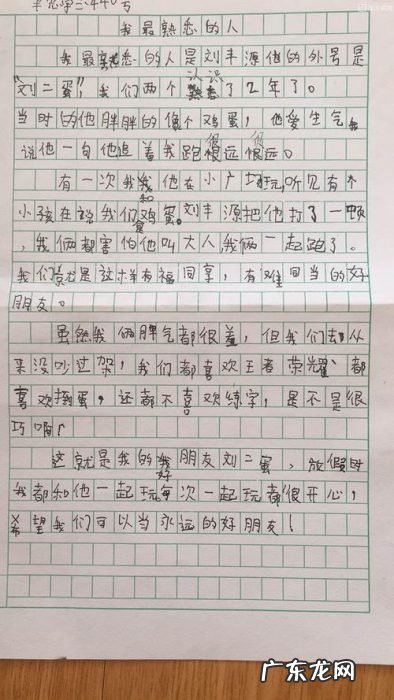 我最熟悉的人
我最熟悉的人是刘丰源他的外号是
"刘二蛋",我们两个认识了2年了。
当时的他胖胖的像个鸡蛋,他爱生气我
说他一句他追着我跑很远很远。
有一次我和他在小广场玩,听见有个
小孩在说我们鸡蛋。刘丰源把他打了一顿
,我俩都害怕他叫大人,我俩一起跑了。
我们就是这样有福同享,有难同当的好
朋友。
虽然我俩脾气都很差,但我们去从
来没吵过架,我们都喜欢王者荣耀,都
喜欢捣蛋,还都不喜欢练字,是不是很
巧啊!
这就是我的好朋友刘二蛋,放假时
我都和他一起玩每次一起玩都很开心,
希望我们可以当永远的好朋友!
广东龙网